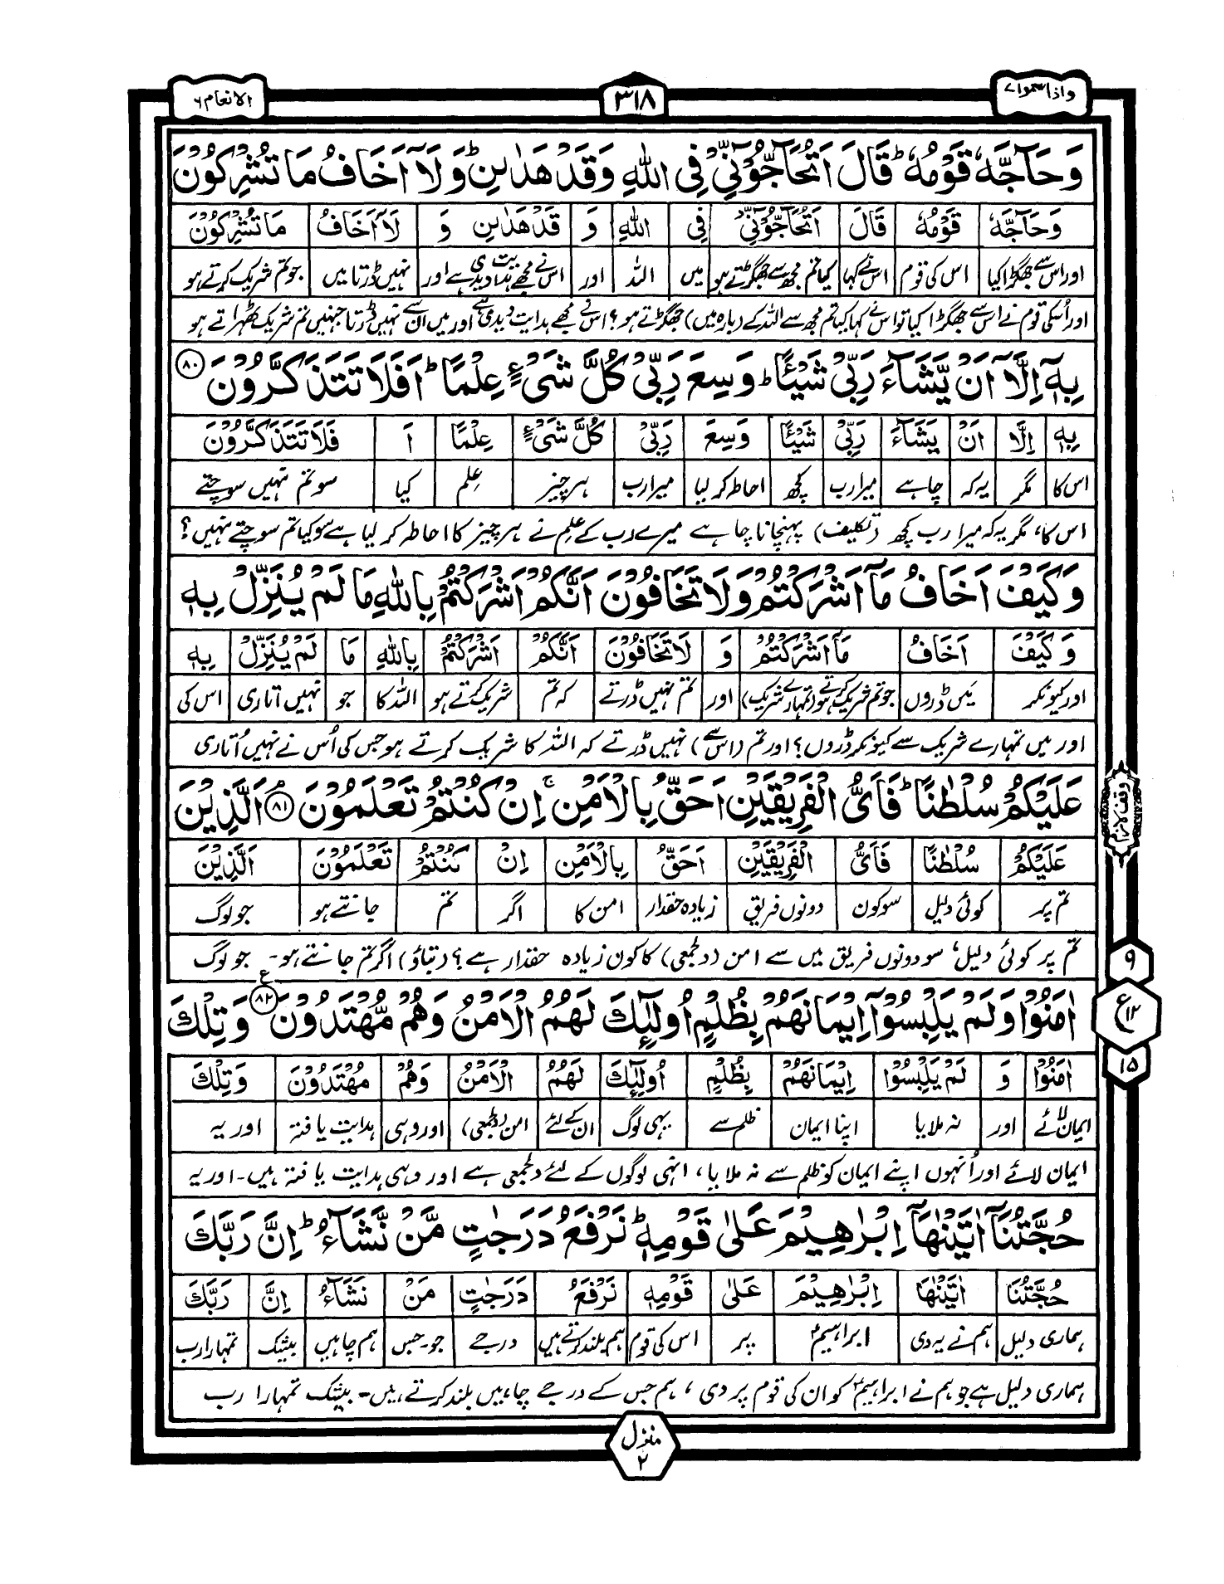 واذا سمعوا ۷
۳۱۸
الانعام ۶
وَحَآجَّهٗ قَوْمُهٗ ؕ قَالَ اَتُحَآجُّوْٓنِّیْ فِی اللّٰهِ وَقَدْ هَدٰىنِ ؕ وَلَاۤ اَخَافُ مَا تُشْرِكُوْنَ
وَحَآجَّهٗ قَوْمُهٗ قَالَ اَتُحَآجُّوْٓنِّیْ فِی اللّٰهِ وَ قَدْ هَدٰىنِ وَ لَاۤ اَخَافُ مَا تُشْرِكُوْنَ
اور اس سے جھگڑا کیا اس کی قوم اس نے کہا کیا تم مجھ سے جھگڑتے ہو میں اللہ اور اس نے مجھے ہدایت دیدی ہے اور نہیں ڈرتا میں جو تم شریک کرتے ہو
اور اُسکی قوم نے اس سے جھگڑا کیا تو اس نے کہا کیا تم مجھ سے اللہ کے (بارہ میں) جھگڑتے ہو؟ اس نے مجھے ہدایت دیدی ہے اور میں ان سے نہیں ڈرتا جنہیں تم شریک ٹھہراتے ہو
بِهٖۤ اِلَّاۤ اَنْ یَّشَآءَ رَبِّیْ شَیْـًٔا ؕ وَسِعَ رَبِّیْ كُلَّ شَیْءٍ عِلْمًا ؕ اَفَلَا تَتَذَكَّرُوْنَ ۸۰
بِهٖۤ اِلَّاۤ اَنْ یَّشَآءَ رَبِّیْ شَیْـًٔا وَسِعَ رَبِّیْ كُلَّ شَیْءٍ عِلْمًا اَ فَلَا تَتَذَكَّرُوْنَ
اس کا مگر یہ کہ چاہے میرا رب کچھ احاطہ کر لیا میرا رب ہر چیز علم کیا سو تم نہیں سوچتے
اس کا، مگر یہ کہ میرا رب کچھ (تکلیف) پہنچانا چاہے میرے رب کے علم نے ہر چیز کا احاطہ کر لیا ہے سو کیا تم سوچتے نہیں؟
وَكَیْفَ اَخَافُ مَاۤ اَشْرَكْتُمْ وَلَا تَخَافُوْنَ اَنَّكُمْ اَشْرَكْتُمْ بِاللّٰهِ مَا لَمْ یُنَزِّلْ بِهٖ
وَكَیْفَ اَخَافُ مَاۤ اَشْرَكْتُمْ وَ لَا تَخَافُوْنَ اَنَّكُمْ اَشْرَكْتُمْ بِاللّٰهِ مَا لَمْ یُنَزِّلْ بِهٖ
اور کیونکر میں ڈروں جو تم شریک کرتے ہو (تمہارے شریک) اور تم نہیں ڈرتے کہ تم شریک کرتے ہو اللہ کا جو نہیں اتاری اس کی
اور میں تمہارے شریک سے کیونکر ڈروں؟ اور تم (اس سے) نہیں ڈرتے کہ اللہ کا شریک کرتے ہو جس کی اُس نے نہیں اُتاری
عَلَیْكُمْ سُلْطٰنًا ؕ فَاَیُّ الْفَرِیْقَیْنِ اَحَقُّ بِالْاَمْنِ ۚ اِنْ كُنْتُمْ تَعْلَمُوْنَ ۘ ۸۱ اَلَّذِیْنَ
عَلَیْكُمْ سُلْطٰنًا فَاَیُّ الْفَرِیْقَیْنِ اَحَقُّ بِالْاَمْنِ اِنْ كُنْتُمْ تَعْلَمُوْنَ اَلَّذِیْنَ
تم پر کوئی دلیل سو کون دونوں فریق زیادہ حقدار امن کا اگر تم جانتے ہو جو لوگ
تم پر کوئی دلیل، سو دونوں فریق میں سے امن (دلجمعی) کا کون زیادہ حقدار ہے؟ (بتاؤ) اگر تم جانتے ہو۔ جو لوگ
اٰمَنُوْا وَلَمْ یَلْبِسُوْۤا اِیْمَانَهُمْ بِظُلْمٍ اُولٰٓىِٕكَ لَهُمُ الْاَمْنُ وَهُمْ مُّهْتَدُوْنَ ۸۲ ع وَتِلْكَ
اٰمَنُوْا وَ لَمْ یَلْبِسُوْۤا اِیْمَانَهُمْ بِظُلْمٍ اُولٰٓىِٕكَ لَهُمُ الْاَمْنُ وَهُمْ مُّهْتَدُوْنَ وَتِلْكَ
ایمان لائے اور نہ ملایا اپنا ایمان ظلم سے یہی لوگ ان کے لئے امن (دلجمعی) اور وہی ہدایت یافتہ اور یہ
ایمان لائے اور اُنہوں اپنے ایمان کو ظلم سے نہ ملایا، انہی لوگوں کے لئے دلجمعی ہے اور وہی ہدایت یافتہ ہیں۔ اور یہ
حُجَّتُنَاۤ اٰتَیْنٰهَاۤ اِبْرٰهِیْمَ عَلٰی قَوْمِهٖ ؕ نَرْفَعُ دَرَجٰتٍ مَّنْ نَّشَآءُ ؕ اِنَّ رَبَّكَ
حُجَّتُنَاۤ اٰتَیْنٰهَاۤ اِبْرٰهِیْمَ عَلٰی قَوْمِهٖ نَرْفَعُ دَرَجٰتٍ مَنْ نَشَآءُ اِنَّ رَبَّكَ
ہماری دلیل ہم نے یہ دی ابراہیم پر اس کی قوم ہم بلند کرتے ہیں درجے جو۔ جس ہم چاہیں بیشک تمہارا رب
ہماری دلیل ہے جو ہم نے ابراہیم کو ان کی قوم پر دی، ہم جس کے درجے چاہیں بلند کرتے ہیں۔ بیشک تمہارا رب
وقف لازم
۹
ع ۱۳
۱۵
منزل ۲